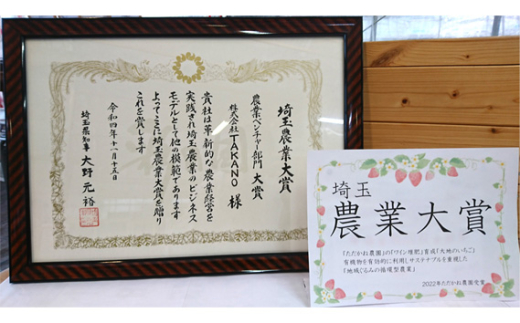 埼玉農業大賞
農業ベンチャー部門 大賞
株式会社TAKANO 様
貴社は革新的な農業経営を
実践され埼玉農業のビジネス
モデルとして他の模範であります
よってここに埼玉農業大賞を贈り
これを賞します
令和四年十一月十五日
埼玉県知事 大野元裕
埼玉
農業大賞
「ただかね農園」の「ワイン堆肥」育成「大地のいちご」
有機物を有効的に利用しサステナブルを実現した
「地域ぐるみの循環型農業」
2022年ただかね農園受賞